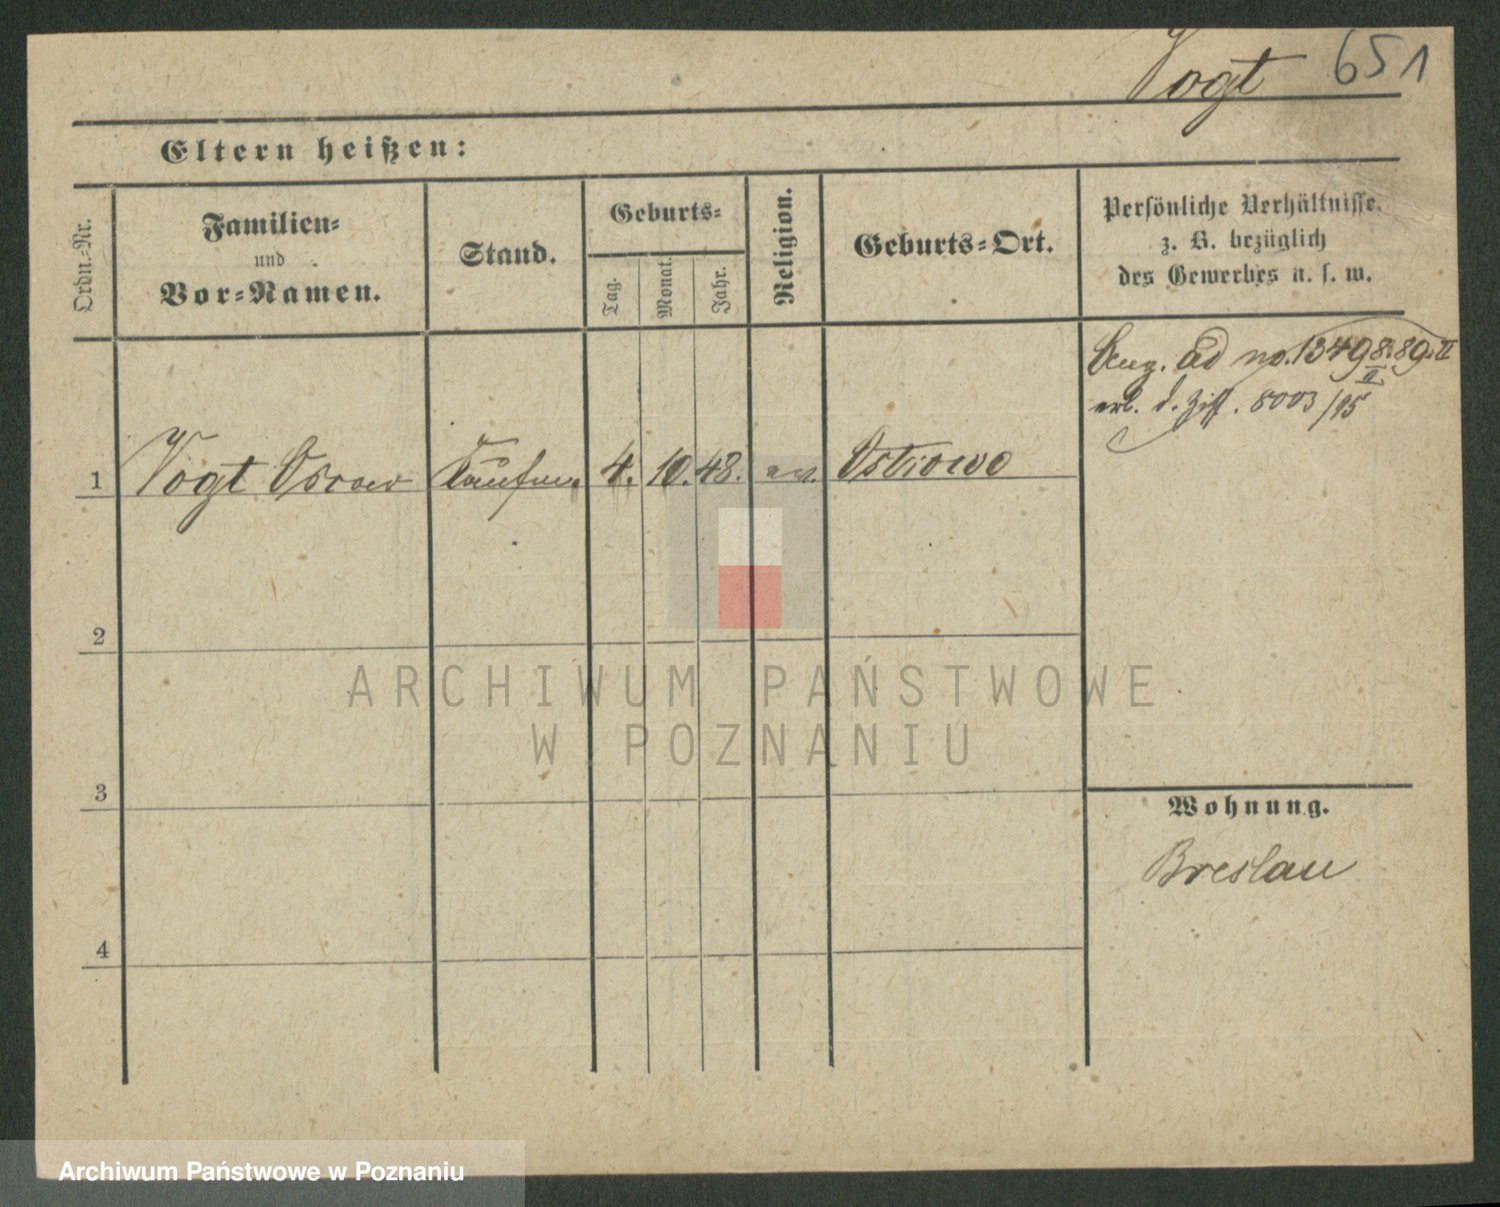 Vogt 651
Eltern heißen:
Ordn.-Nr.
Familien-
und
Vor-Namen.
Stand.
Geburts-
Tag.
Monat.
Jahr.
Religion.
Geburts-Ort.
Persönliche Verhältnisse.
z. B. bezüglich
des Gewerbes u. s. w.
ad no. 13498.89. II
II
erl. d. Ziff. 8003/95
1 Vogt Oscar Kaufm. 4. 10. 48. ev. Ostrowo
2
3
4
Wohnung.
Breslau
ARCHIWUM PAŃSTWOWE
W POZNANIU
Archiwum Państwowe w Poznaniu